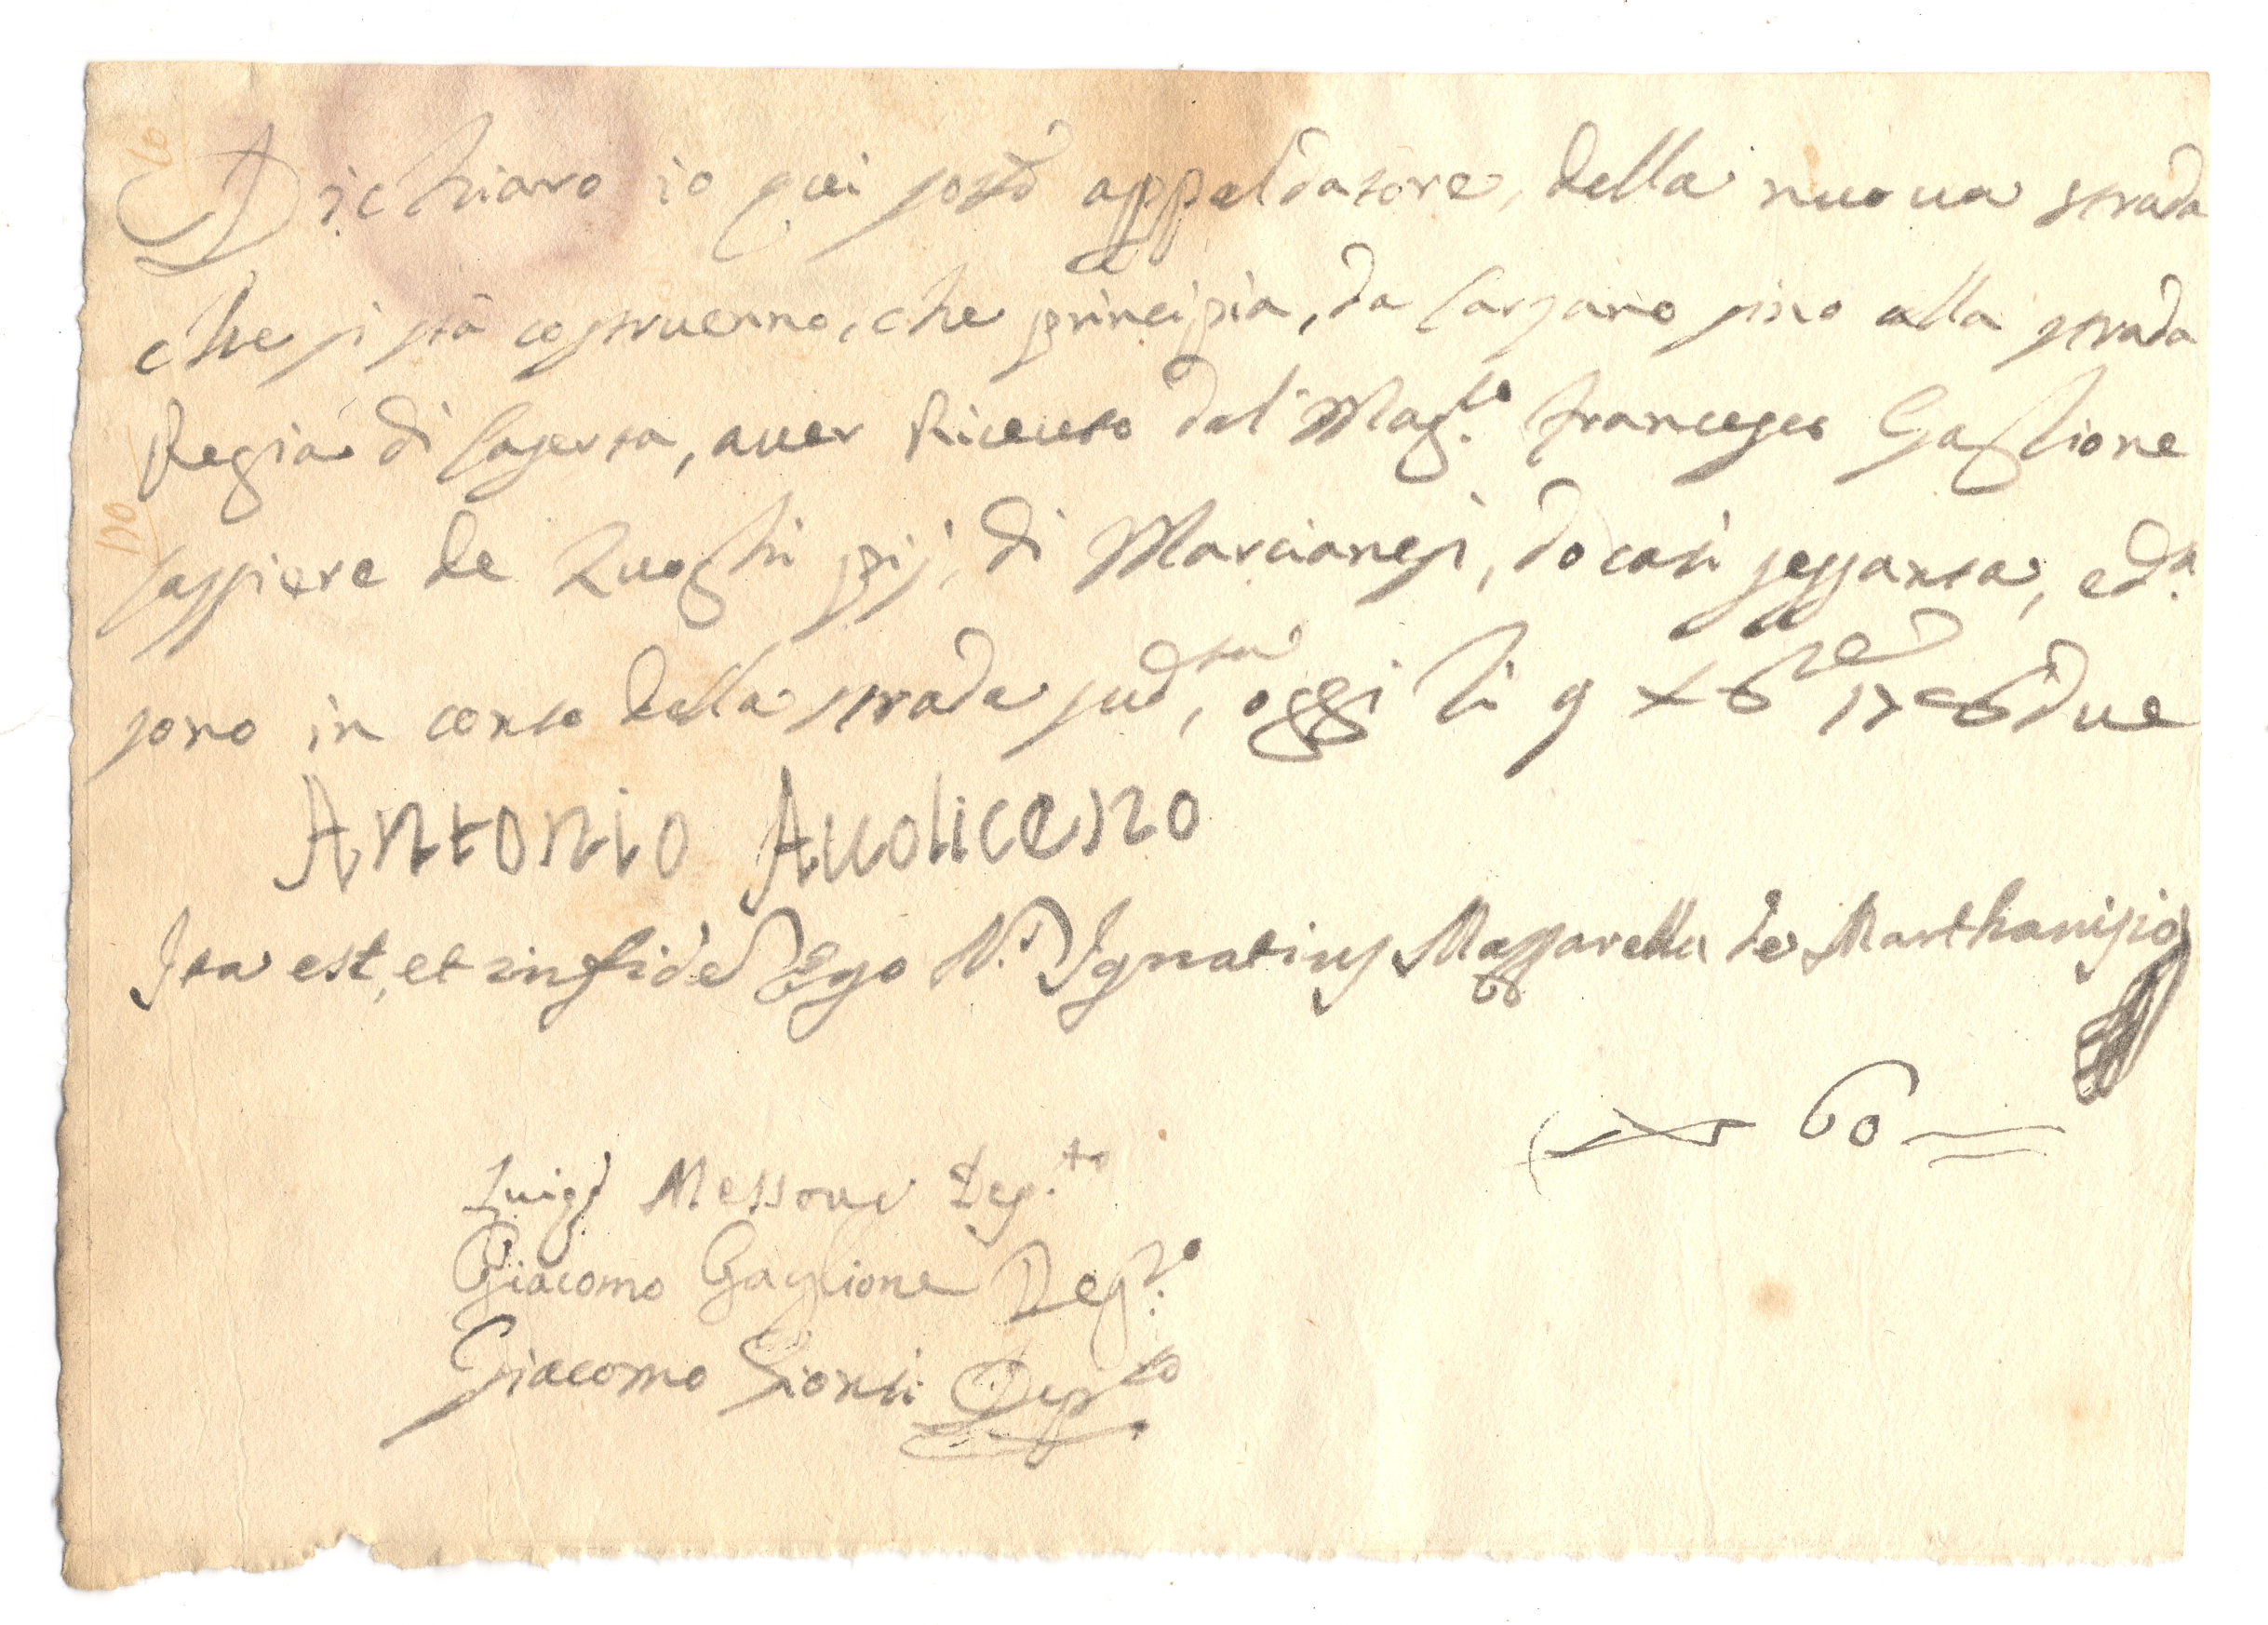 Dichiaro io qui sotto appaldatore, della nuova strada
che si stà costruenno, che principia, da Carzano sino alla strada
Regia di Caserta, aver Riceuto dal Mag.co Francesco Gaglione
Cassiere de Luoghi pij, di Marcianesi, docati sessanta, e d.i
sono in conto della strada sud.ta, oggi li 9 Xbre due
Antonio
Ita est, et in fide Ego N.r Ignatius Mazzarella de Marthanisio
60
Luigi Messore Dep.to
Giacomo Gaglione Dep.to
Giacomo Dep.to